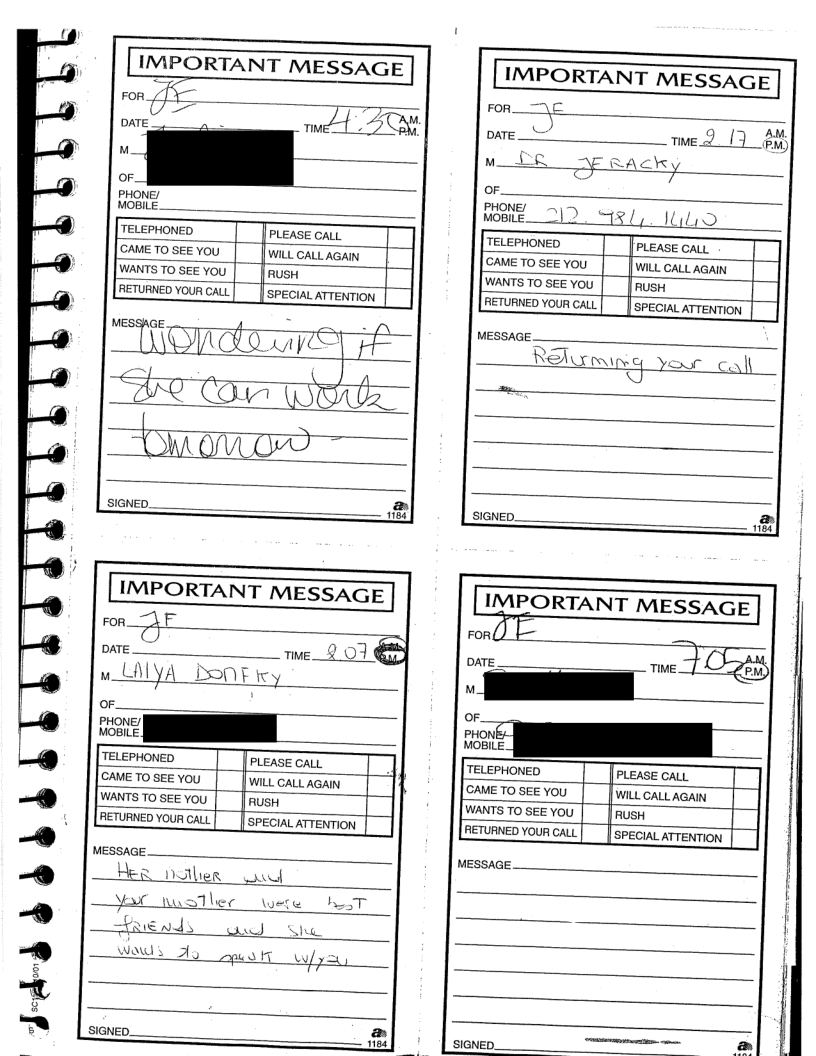 IMPORTANT MESSAGE
FOR JE
DATE TIME 4:30 A.M.
P.M.
M
OF
PHONE/
MOBILE
TELEPHONED PLEASE CALL
CAME TO SEE YOU WILL CALL AGAIN
WANTS TO SEE YOU RUSH
RETURNED YOUR CALL SPECIAL ATTENTION
MESSAGE wondering if
She can work
tomorrow -
SIGNED
1184
IMPORTANT MESSAGE
FOR JE
DATE TIME 2.17 A.M.
P.M.
M DR JERACKY
OF
PHONE/
MOBILE 212. 984. 1440
TELEPHONED PLEASE CALL
CAME TO SEE YOU WILL CALL AGAIN
WANTS TO SEE YOU RUSH
RETURNED YOUR CALL SPECIAL ATTENTION
MESSAGE
Returning your call
SIGNED
1184
IMPORTANT MESSAGE
FOR JE
DATE TIME 2.07
P.M.
M
OF
PHONE/
MOBILE
TELEPHONED PLEASE CALL
CAME TO SEE YOU WILL CALL AGAIN
WANTS TO SEE YOU RUSH
RETURNED YOUR CALL SPECIAL ATTENTION
MESSAGE
HER mother and
your mother were best
FRIENDS and she
wants to speak w/you
SIGNED
1184
IMPORTANT MESSAGE
FOR JE
DATE TIME 7:05 A.M.
P.M.
M
OF
PHONE/
MOBILE
TELEPHONED PLEASE CALL
CAME TO SEE YOU WILL CALL AGAIN
WANTS TO SEE YOU RUSH
RETURNED YOUR CALL SPECIAL ATTENTION
MESSAGE
SIGNED
1184